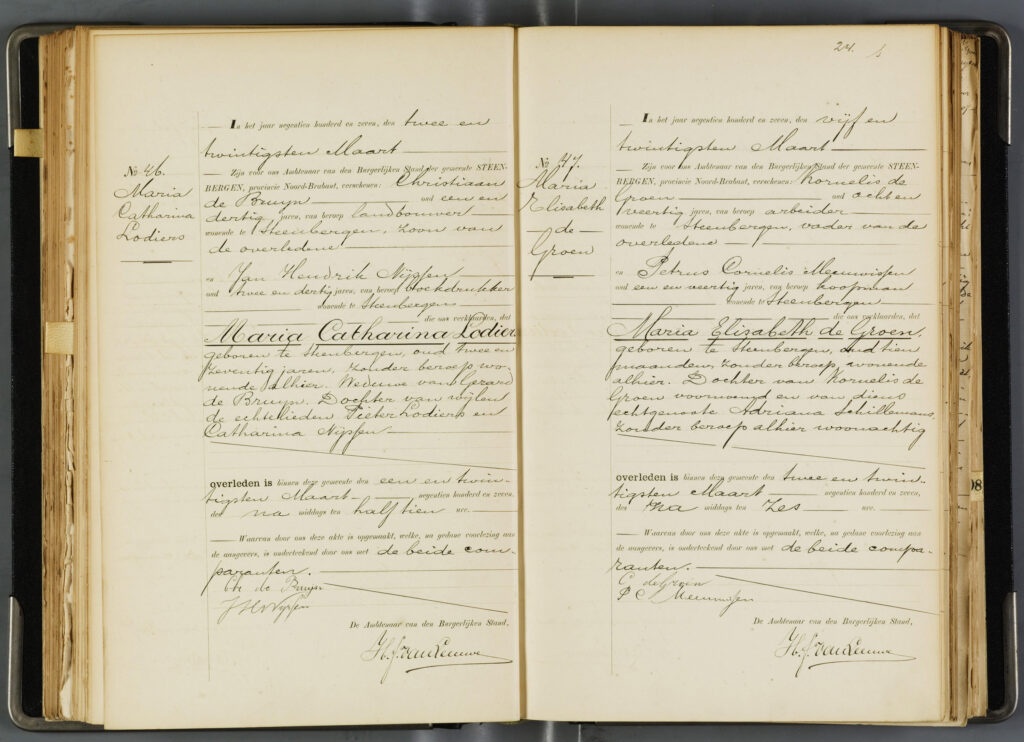 No 46.
Maria
Catharina
Lodiers
In het jaar negentien honderd en zeven, den twee en
twintigsten Maart
Zijn voor ons Ambtenaar van den Burgerlijken Stand der gemeente STEEN-
BERGEN, provincie Noord-Brabant, verschenen: Christiaan
de Bruijn oud een en
dertig jaren, van beroep landbouwer
wonende te Steenbergen, zoon van
de overledene
en Jan Hendrik Nijssen
oud twee en dertig jaren, van beroep boekdrukker
wonende te Steenbergen
die ons verklaarden, dat
Maria Catharina Lodiers
geboren te Steenbergen, oud twee en
zeventig jaren, zonder beroep, wo-
nende alhier. Weduwe van Gerard
de Bruijn. Dochter van wijlen
de echtelieden Pieter Lodiers en
Catharina Nijssen
overleden is binnen deze gemeente den een en twin-
tigsten Maart negentien honderd en zeven,
des na middags ten half tien ure.
Waarvan door ons deze akte is opgemaakt, welke, na gedane voorlezing aan
de aangevers, is onderteekend door ons met de beide com-
paranten.
Ch de Bruijn
J H Nijssen
De Ambtenaar van den Burgerlijken Stand,
H. J. van Leeuwe
24.
No 47.
Maria
Elisabeth
de
Groen
In het jaar negentien honderd en zeven, den vijf en
twintigsten Maart
Zijn voor ons Ambtenaar van den Burgerlijken Stand der gemeente STEEN-
BERGEN, provincie Noord-Brabant, verschenen: Kornelis de
Groen oud acht en
veertig jaren, van beroep arbeider
wonende te Steenbergen, vader van de
overledene
en Petrus Cornelis Meeuwissen
oud een en veertig jaren, van beroep koopman
wonende te Steenbergen
die ons verklaarden, dat
Maria Elisabeth de Groen,
geboren te Steenbergen, oud tien
maanden, zonder beroep, wonende
alhier. Dochter van Kornelis de
Groen voornoemd en van diens
echtgenoote Adriana Schillemans,
zonder beroep alhier woonachtig
overleden is binnen deze gemeente den twee en twin-
tigsten Maart negentien honderd en zeven,
des na middags ten zes ure.
Waarvan door ons deze akte is opgemaakt, welke, na gedane voorlezing aan
de aangevers, is onderteekend door ons met de beide compa-
ranten.
C de Groen
P C Meeuwissen
De Ambtenaar van den Burgerlijken Stand,
H. J. van Leeuwe